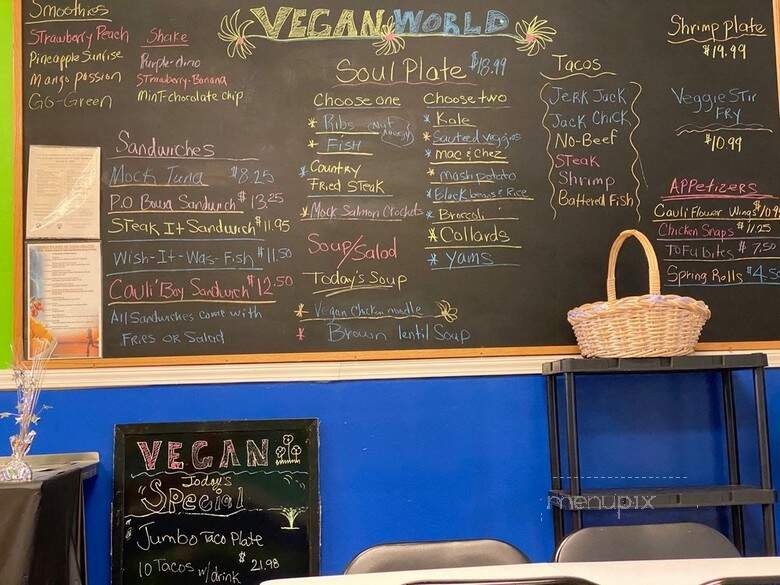 Smoothies
Strawbarry Peach
Pineapple Sunrise
Mango passion
GG-Green
Shake
Purple-dino
Strawberry-Banana
Mint-chocolate chip
VEGAN WORLD
Soul Plate $18.99
Choose one
* Ribs
* Fish
* Country
Fried Steak
* Mock Salmon Crockets
Choose two
* Kale
* Sauteed veggies
* Mac & Chez
* Mash potato
* Black beans & Rice
* Broccoli
* Collards
* Yams
Soup/Salad
Today's Soup
* Vegan Chicken noodle
* Brown lentil Soup
Sandwiches
Mock Tuna $8.25
P.O Bowa Sandwich $13.25
Steak It Sandwich $11.95
Wish-It-Was-Fish $11.50
Cauli' Boy Sandwich $12.50
All Sandwiches come with
Fries or Salad
Tacos
Jerk Jack
Jack Chick
No-Beef
Steak
Shrimp
Battered Fish
Shrimp plate
$19.99
Veggie Stir
Fry
$10.99
Appetizers
Cauli Flower Wings $10.9
Chicken Snaps $11.25
Tofu bites $7.50
Spring Rolls $4.5
VEGAN
Today's
"Special"
Jumbo Taco Plate
10 Tacos w/drink $21.98
menupix